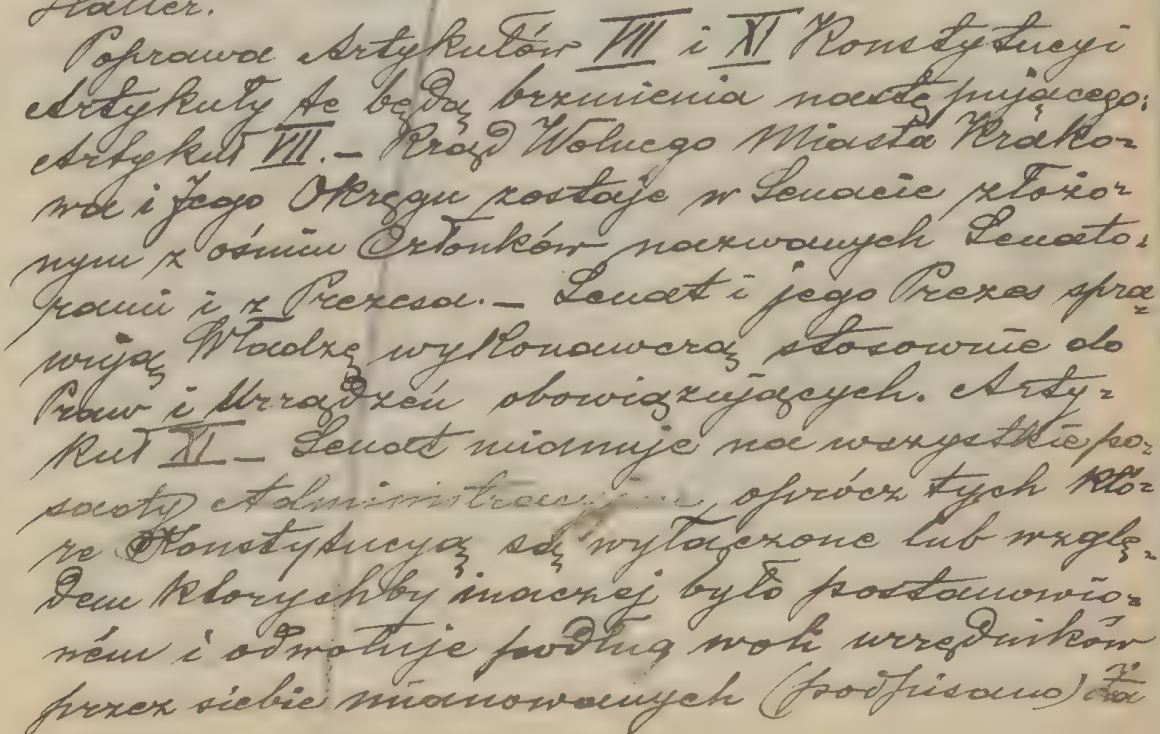 Haller.
Poprawa Artykułów VII i XI Konstytucyi
Artykuły te będą brzmienia następującego:
Artykuł VII. — Rząd Wolnego Miasta Krako-
wa i Jego Okręgu zostaje w Senacie złożo-
nym z ośmiu Członków nazwanych Senato-
rami i z Prezesa. — Senat i jego Prezes spra-
wują Władzę wykonawczą stosownie do
Praw i Urządzeń obowiązujących. Arty-
kuł XI — Senat mianuje na wszystkie po-
sady Administracyjne, oprócz tych któ-
re Konstytucyą są wyłączone lub wzglę-
dem ktorychby inaczej było postanowio-
ném i odwołuje podług woli urzędników
przez siebie mianowanych (podpisano) Za